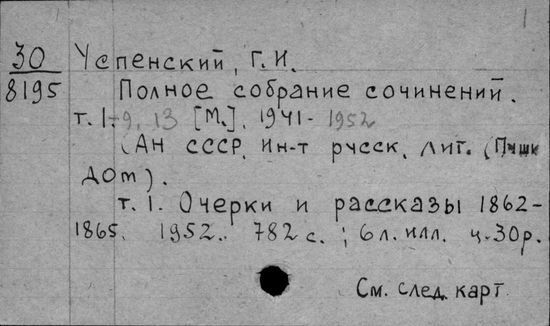 1
30 Успенский, Г. И.
8195 Полное собрание сочинений.
т. 1-9, 13 [М.], 1941-1952
(Ан СССР, Ин-т русск. лит. (Пушк
дом).
т. 1. Очерки и рассказы 1862-
1865. 1952. 782 с.; 6 л. илл. ц. 30 р.
См. след. карт